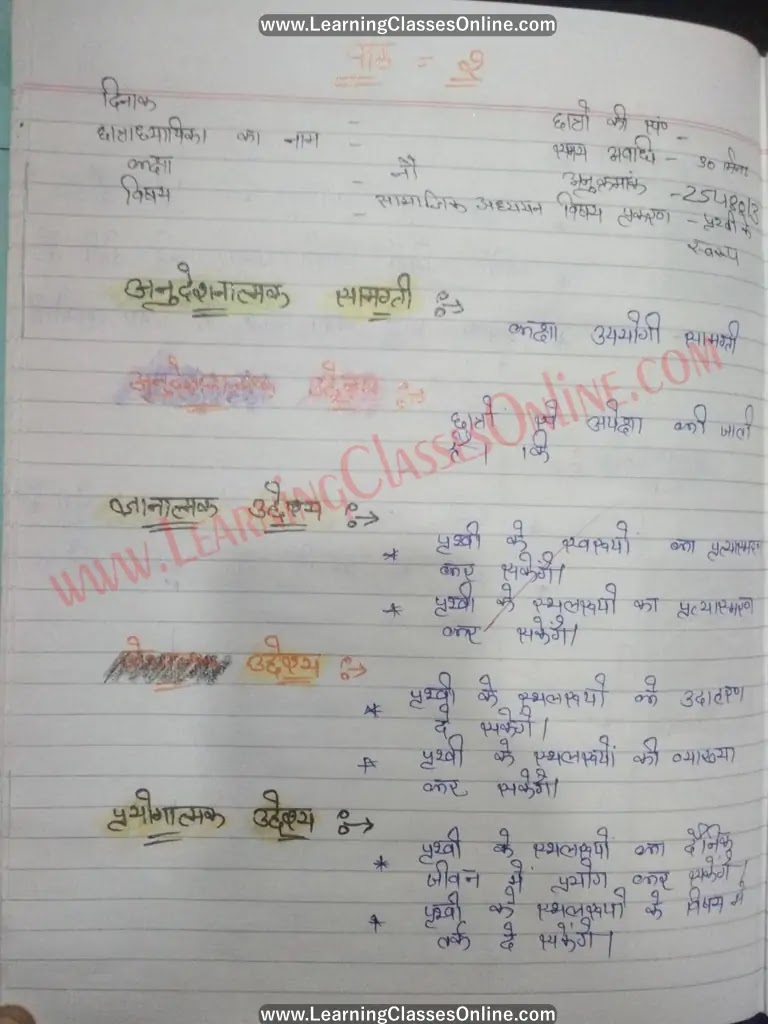 www.LearningClassesOnline.com
पाठ = 2
दिनाक -
छात्रों की सं० -
छात्राध्यापिका का नाम -
समय अवधि - 30 मिनट
कक्षा - नौ
अनुक्रमांक -
विषय - सामाजिक अध्ययन
विषय प्रकरण - पृथ्वी के
स्वरूप
अनुदेशनात्मक सामग्री :→
कक्षा उपयोगी सामग्री
अनुदेशनात्मक उद्देश्य :→
छात्रों से अपेक्षा की जाती
है। कि
ज्ञानात्मक उद्देश्य :→
* पृथ्वी के स्वरूपों का प्रत्यास्मरण
कर सकेंगें।
* पृथ्वी के स्थलरूपों का प्रत्यास्मरण
कर सकेंगें।
उद्देश्य :→
* पृथ्वी के स्थलरूपों के उदाहरण
दे सकेंगें।
* पृथ्वी के स्थलरूपों की व्याख्या
कर सकेंगें।
प्रयोगात्मक उद्देश्य :→
* पृथ्वी के स्थलरूपों का दैनिक
जीवन में प्रयोग कर सकेंगें।
* पृथ्वी के स्थलरूपों के विषय में
तर्क दे सकेंगें।
www.LearningClassesOnline.com
www.LearningClassesOnline.com